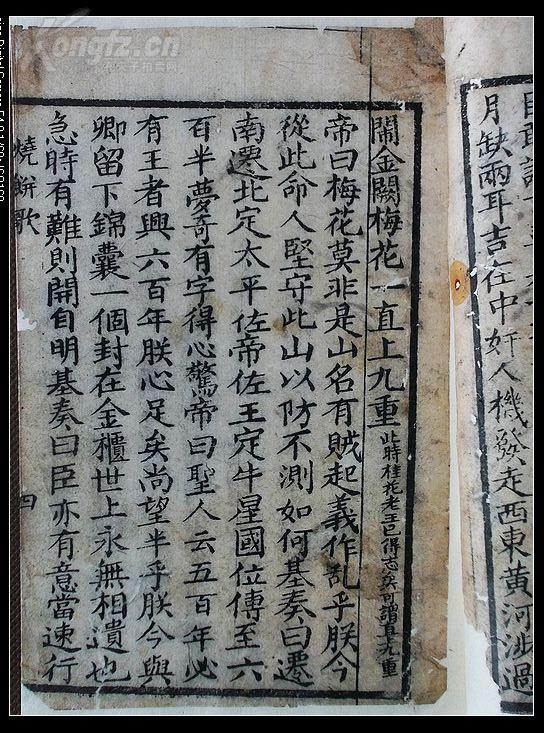 月缺兩耳吉在中奸人機發走西東黃河涉過
鬧金闕梅花一直上九重此時桂花老王已得志矣可謂直九重
帝曰梅花莫非是山名有賊起義作乱乎朕今
從此命人堅守此山以防不測如何基奏曰遷
南遷北定太平佐帝佐王定牛星國位傳至六
百半夢奇有字得心驚帝曰聖人云五百年必
有王者興六百年朕心足矣尚望半乎朕今與
卿留下錦囊一個封在金櫃世上永無相遺也
急時有難則開自明基奏曰臣亦有意當速行
燒餅歌
四
Kongfz.cn